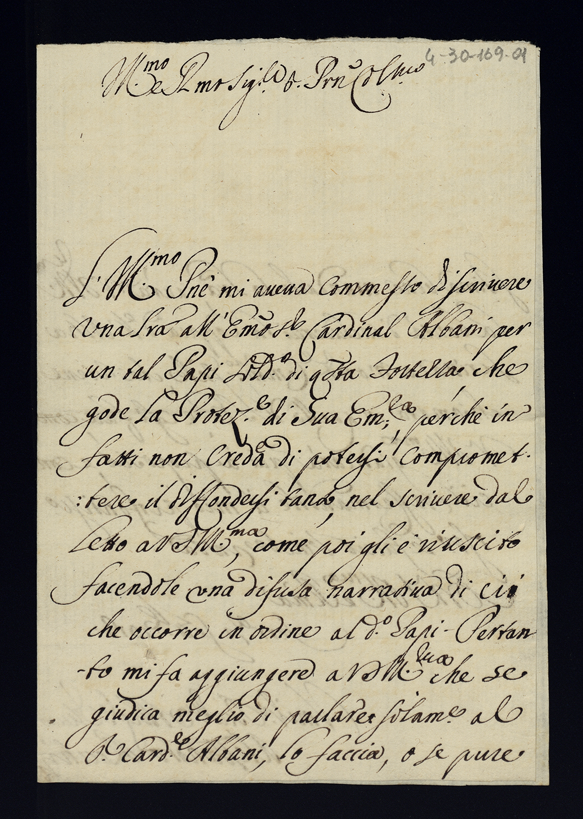 4-30-169-01
Ill.mo e R.mo Sig.re
L'Ill.mo Pñe mi aveva Commesso di scrivere
una lrã all' Em̃o S.r Cardinal Albani per
un tal Papi Sold.o di q̃sta Fortezza che
gode la Protez.e di Sua Em.za, perche in
fatti non Credea di potersi Compromet-
:tere il diffondersi tanto nel scrivere dal
Letto a VS Ill.ma, come poi gli è riuscito
facendole una difusa narrativa di ciò
che occorre in ordine al d.o Papi - Pertan
-to mi fa aggiungere a VS Ill.ma che se
giudica meglio di parlare solam.e al
S.r Card.le Albani, lo faccia, o se pure